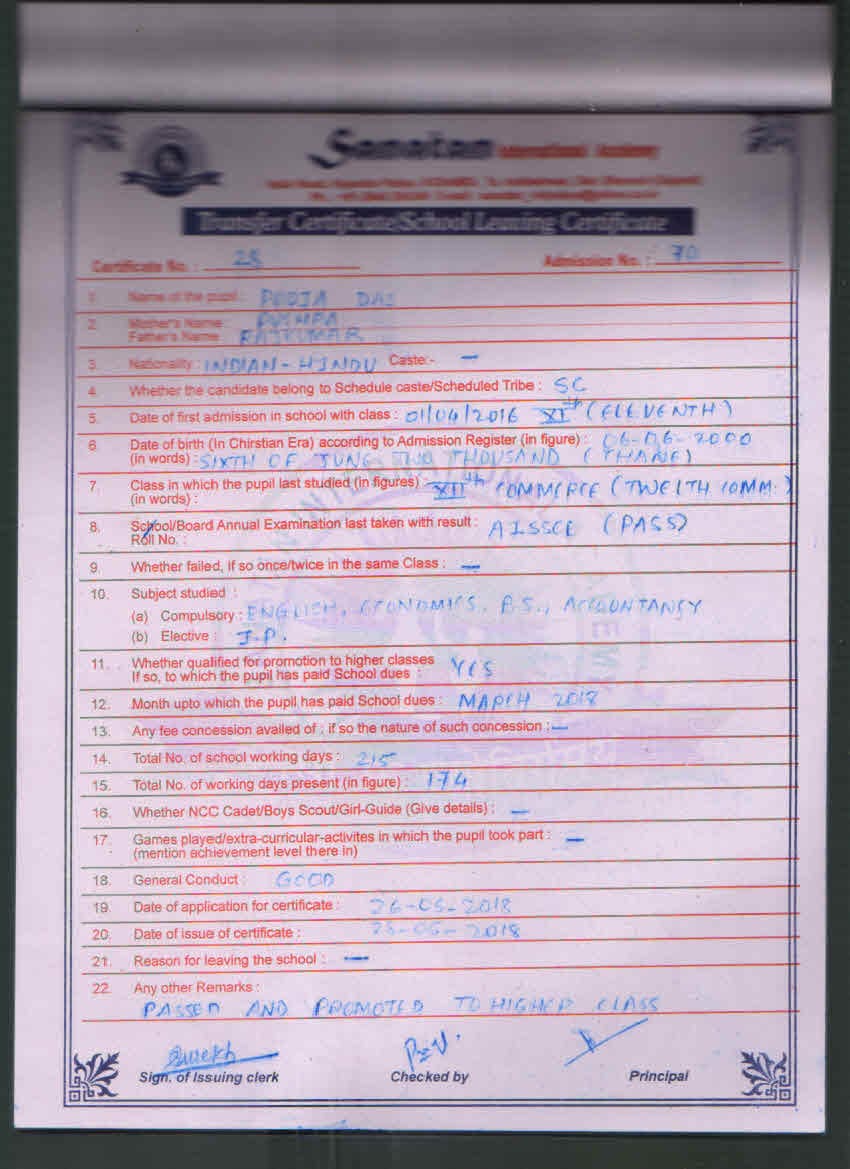 Sanatan International Academy
Transfer Certificate/School Leaving Certificate
Certificate No. : 28 Admission No. : 70
1. Name of the pupil : POOJA DAS
2. Mother's Name : PUSHPA
Father's Name : RAJKUMAR
3. Nationality : INDIAN - HINDU Caste:- —
4. Whether the candidate belong to Schedule caste/Scheduled Tribe : SC
5. Date of first admission in school with class : 01/04/2016 XIth (ELEVENTH)
6. Date of birth (In Chirstian Era) according to Admission Register (in figure) : 06-06-2000
(in words) : SIXTH OF JUNE TWO THOUSAND (THANE)
7. Class in which the pupil last studied (in figures) XIIth COMMERCE (TWELTH COMM.)
(in words) :
8. School/Board Annual Examination last taken with result : AISSCE (PASS)
Roll No. :
9. Whether failed, if so once/twice in the same Class : —
10. Subject studied :
(a) Compulsory : ENGLISH, ECONOMICS, B.S., ACCOUNTANCY
(b) Elective : I.P.
11. Whether qualified for promotion to higher classes
If so, to which the pupil has paid School dues : YES
12. Month upto which the pupil has paid School dues : MARCH 2018
13. Any fee concession availed of ; if so the nature of such concession : —
14. Total No. of school working days : 215
15. Total No. of working days present (in figure) : 174
16. Whether NCC Cadet/Boys Scout/Girl-Guide (Give details) : —
17. Games played/extra-curricular-activites in which the pupil took part : —
(mention achievement level there in)
18. General Conduct : GOOD
19. Date of application for certificate : 26-05-2018
20. Date of issue of certificate : 28-05-2018
21. Reason for leaving the school : —
22. Any other Remarks :
PASSED AND PROMOTED TO HIGHER CLASS
Sign. of Issuing clerk Checked by Principal